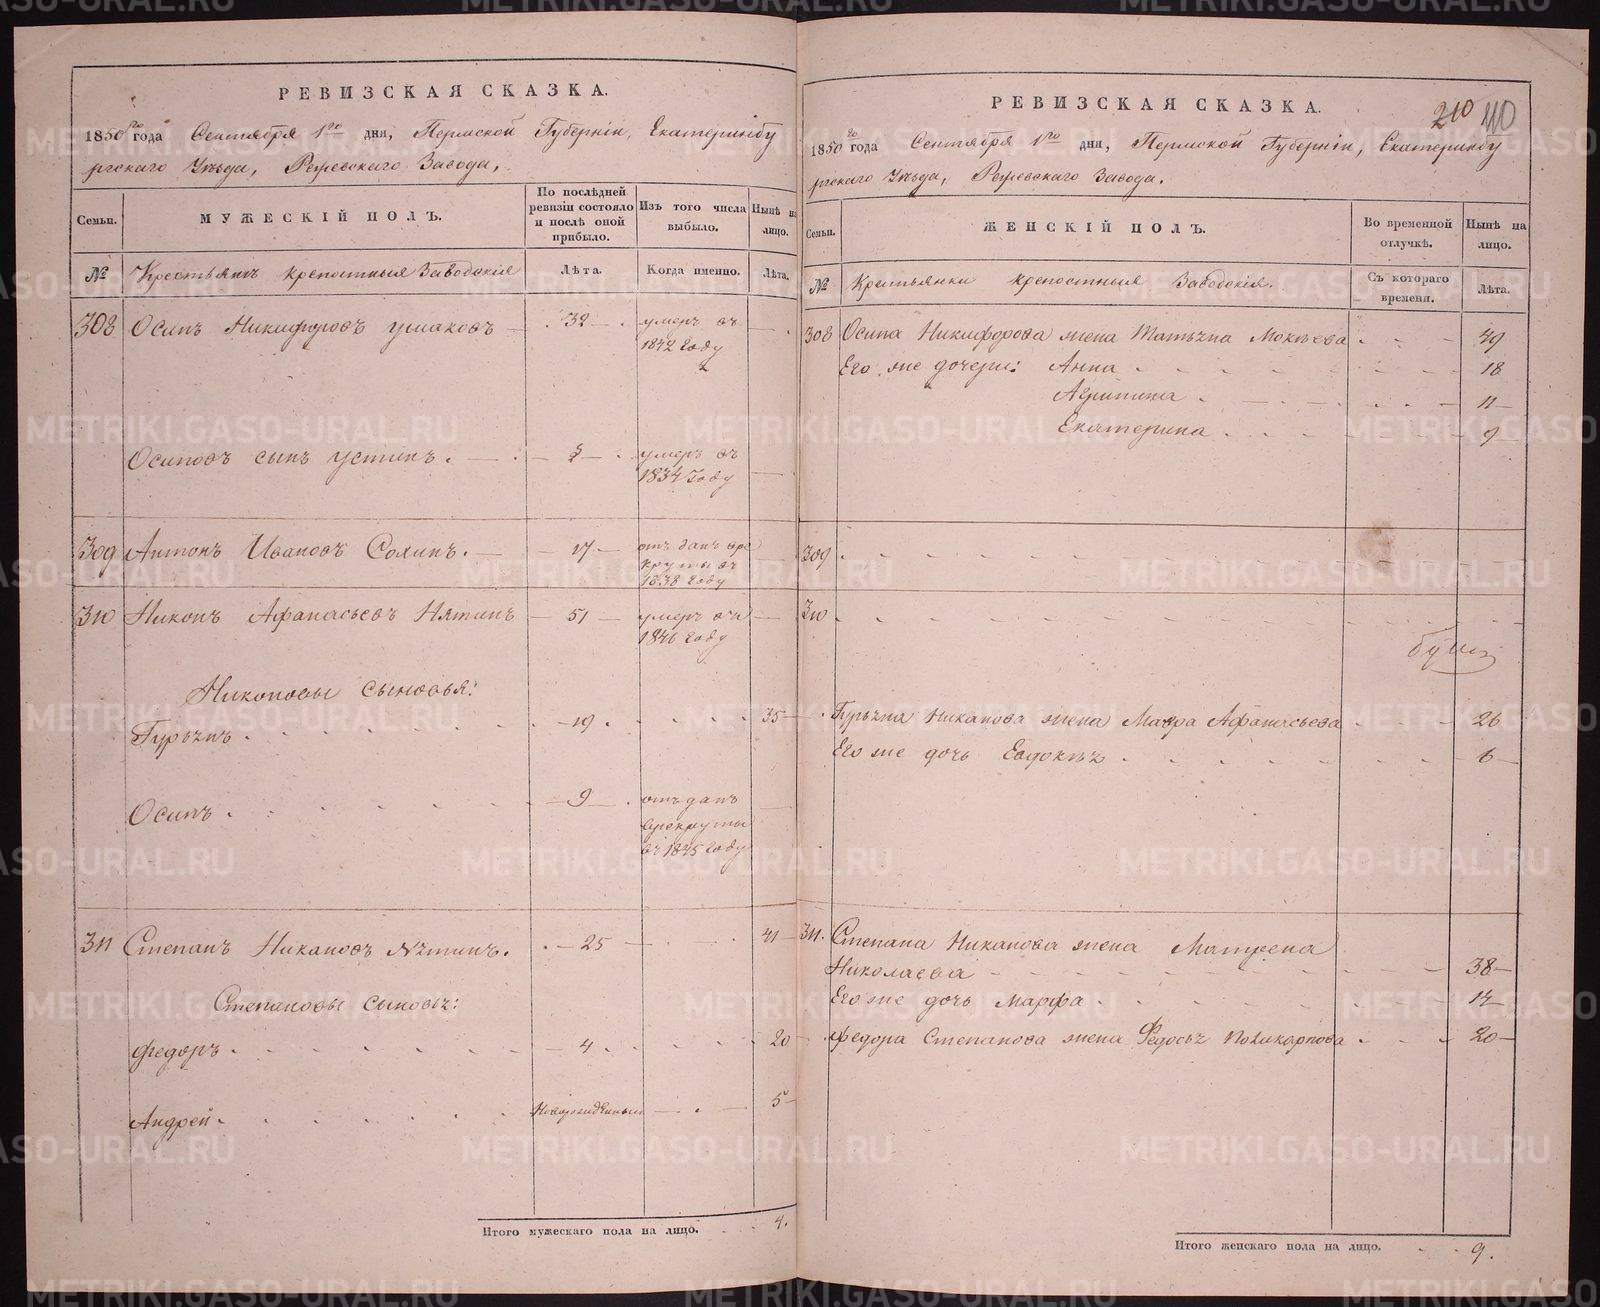 РЕВИЗСКАЯ СКАЗКА.
1850го года Сентября 1го дня, Пермской Губернiи, Екатеринбу
ргскаго Уѣзда, Режевскаго Завода,
Семьи.
МУЖЕСКIЙ ПОЛЪ.
По послѣдней
ревизiи состояло
и послѣ оной
прибыло.
Изъ того числа
выбыло.
Нынѣ на
лицо.
№
Крестьянъ крепостныя Заводскiя
Лѣта.
Когда именно.
Лѣта.
308 Осипъ Никифоровъ Ушаковъ 32 умеръ въ
1842 Году
Осиповъ сынъ Устинъ. умеръ въ
1834 Году
309 Антонъ Ивановъ Солинъ. 17 отъ данъ вре
круты въ
1838 Году
310 Никонъ Афанасьевъ 51 умеръ въ
1846 Году
Никоновы сыновья:
Гурьянъ 19 35
Осипъ 9 отъ данъ
врекруты
въ 1845 Году
311 Степанъ Никановъ 25 41
Степановы сыновья:
Федоръ 4 20
Андрей Новорожденный 5
Итого мужескаго пола на лицо. 4.
210
110
РЕВИЗСКАЯ СКАЗКА.
1850го года Сентября 1го дня, Пермской Губернiи, Екатеринбу
ргскаго Уѣзда, Режевскаго Завода.
Семьи.
ЖЕНСКIЙ ПОЛЪ.
Во временной
отлучкѣ.
Нынѣ на
лицо.
№
Крестьянки крепостныя Заводскiя.
Съ котораго
времени.
Лѣта.
308 Осипа Никифорова жена Татьяна Мокѣева 49
Его же дочери: Анна 18
Агрипина 11
Екатерина 9
309
310
Гурьяна Никанова жена Мавра Афанасьева 26
Его же дочь Евдокѣя 6
311. Степана Никанова жена Матрена
Николаева 38
Его же дочь Марфа 14
Федора Степанова жена Федосья Поликарпова 20
Итого женскаго пола на лицо. 9.
METRIKI.GASO-URAL.RU